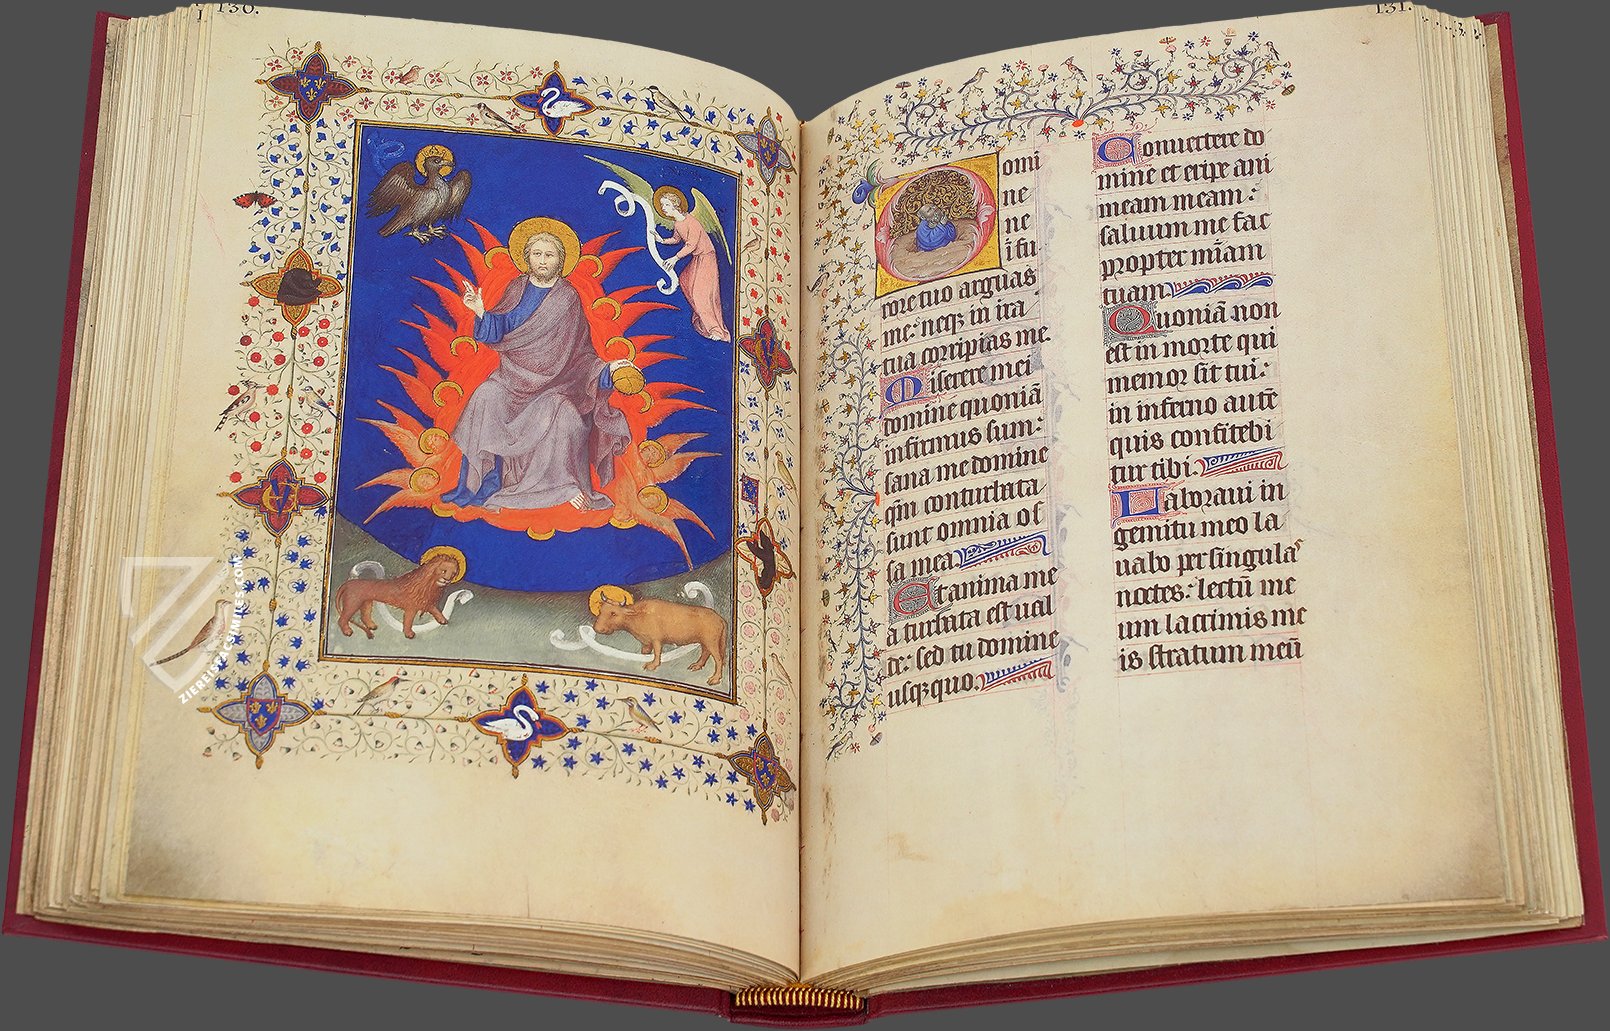 130.
131.
Domi
ne
ne
ĩ fu
rore tuo arguas
me: neq; in ira
tua corripias me.
Miserere mei
domine quoniã
infirmus sum:
sana me domine
qm̃ conturbata
sunt omnia os
sa mea.
Et anima me
a turbata est ual
de: sed tu domine
usq; quo.
Conuertere do
mine et eripe ani
meam meam:
saluum me fac
propter miam̃
tuam.
Quoniã non
est in morte qui
memor sit tui:
in inferno autẽ
quis confitebi
tur tibi.
Laboraui in
gemitu meo la
uabo per singulas
noctes: lectũ me
um lacrimis me
is stratum meũ
ZIEREIS FACSIMILES.com